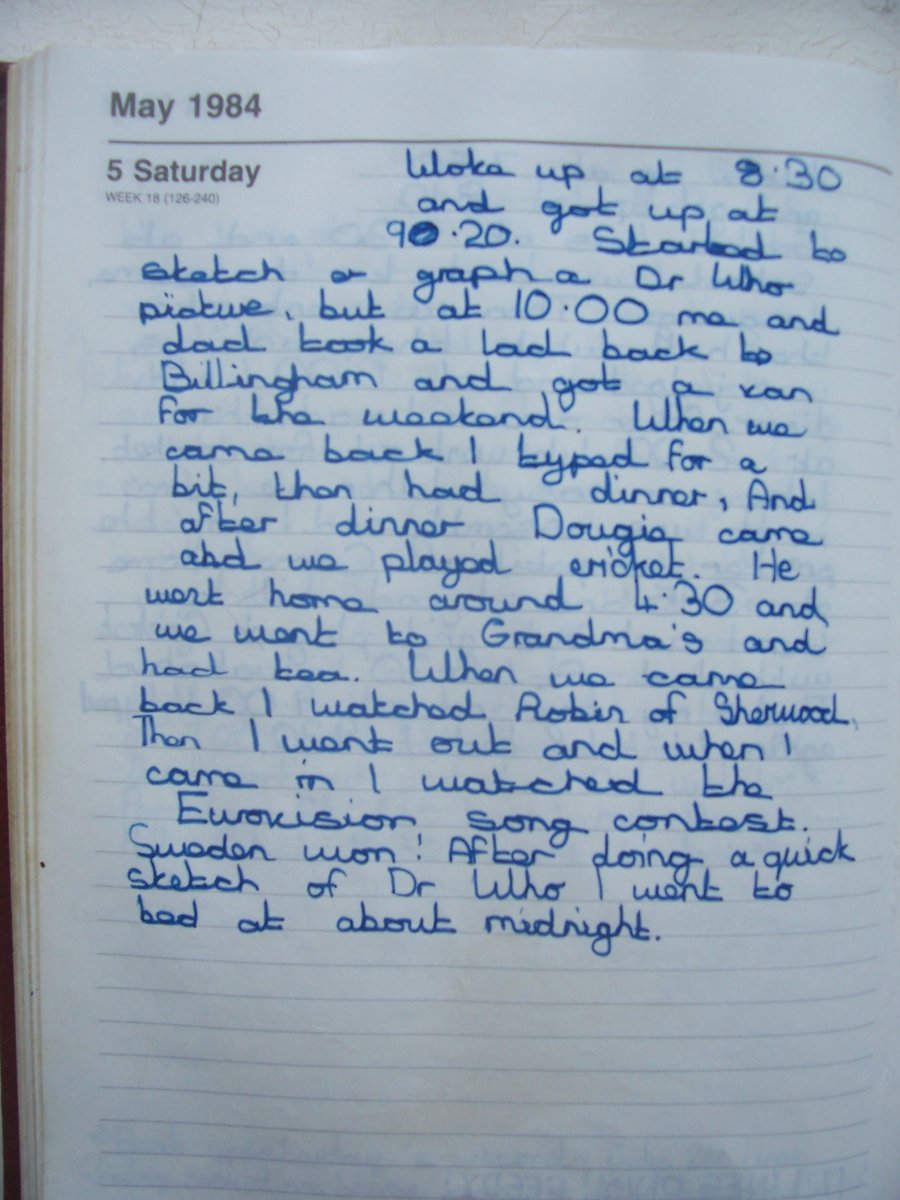 May 1984
5 Saturday
WEEK 18 (126-240)
Woke up at 8:30
and got up at
9.20. Started to
sketch or graph a Dr Who
picture, but at 10:00 me and
dad took a lad back to
Billingham and got a van
for the weekend. When we
came back I typed for a
bit, then had dinner, And
after dinner Dougie came
and we played cricket. He
went home around 4:30 and
we went to Grandma's and
had tea. When we came
back I watched Robin of Sherwood.
Then I went out and when I
came in I watched the
Eurovision song contest.
Sweden won! After doing a quick
sketch of Dr Who I went to
bed at about midnight.